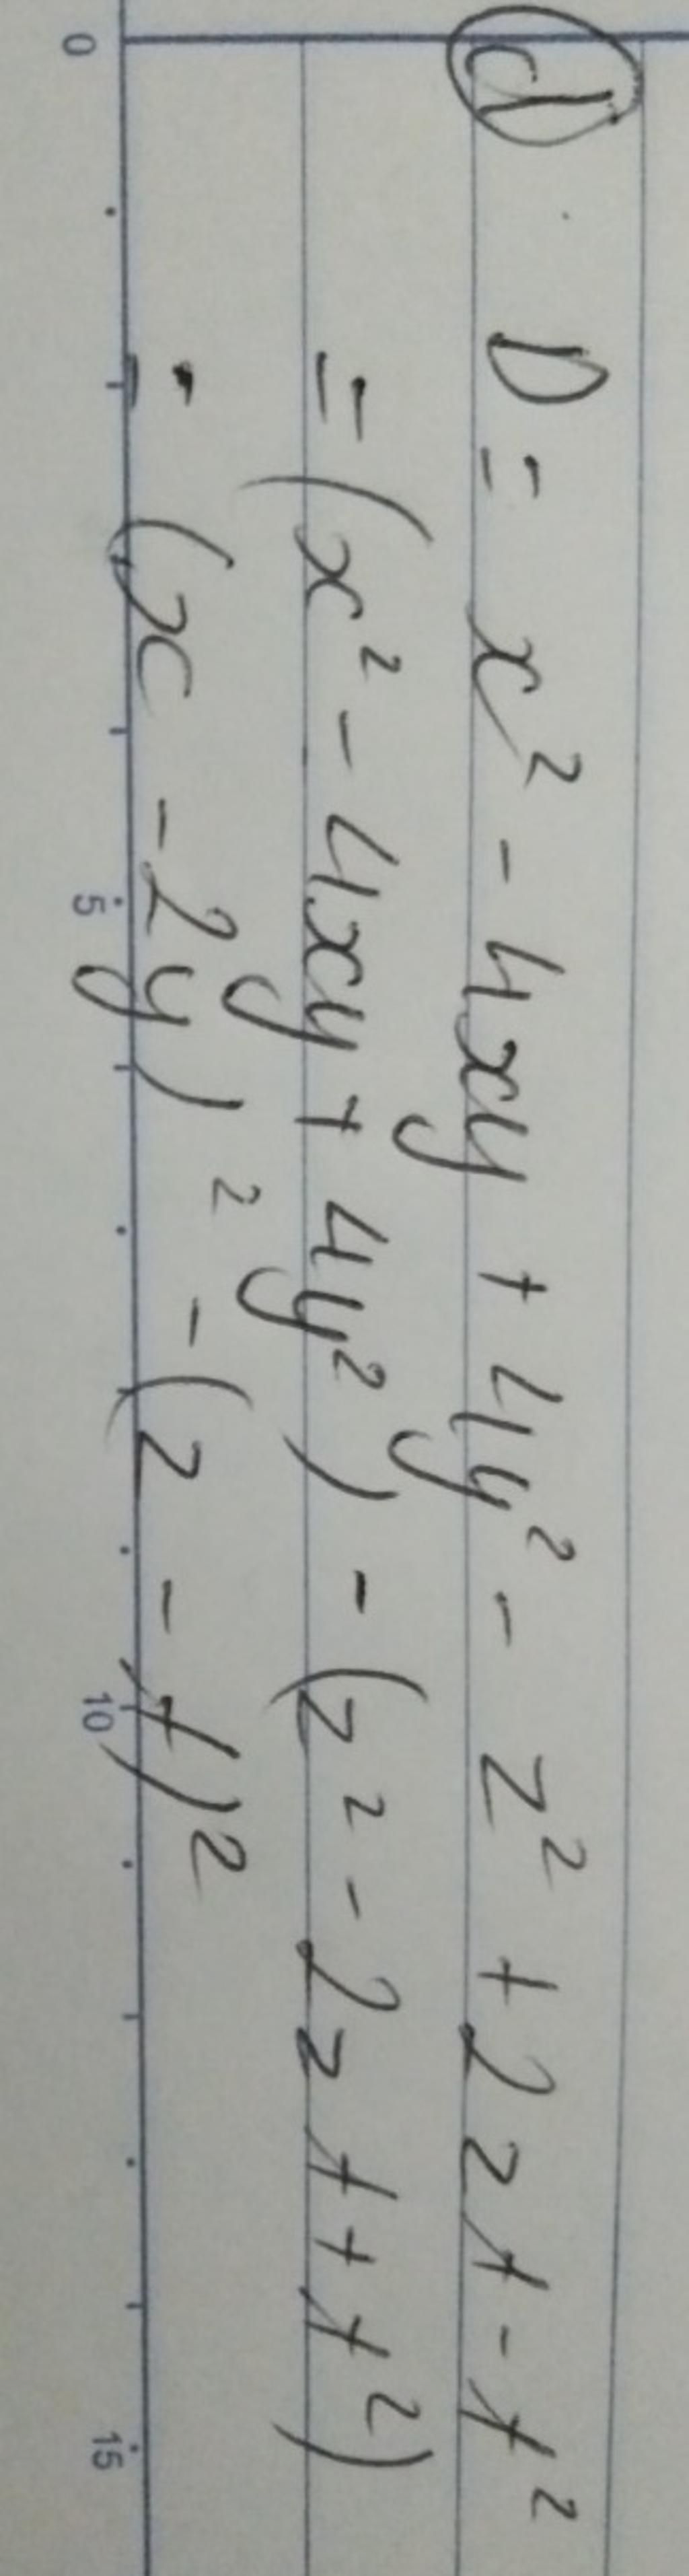 d) D = x² - 4xy + 4y² - z² + 2zt - t²
= (x² - 4xy + 4y²) - (z² - 2zt + t²)
= (x - 2y)² - (z - t)²
0 5 10 15